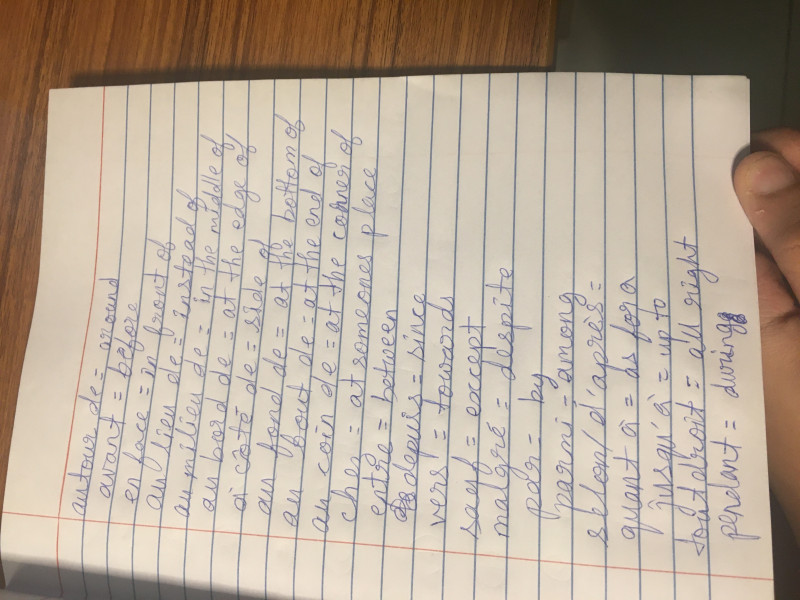 autour de = around
avant = before
en face = in front of
au lieu de = instead of
au milieu de = in the middle of
au bord de = at the edge of
à coté de = side of
au fond de = at the bottom of
au bout de = at the end of
au coin de = at the corner of
chez = at someones place
entre = between
depuis = since
vers = towards
sauf = except
malgré = despite
par = by
parmi = among
selon/d'après =
quant à = as for a
jusqu'à = up to
tout droit = all right
pendant = during